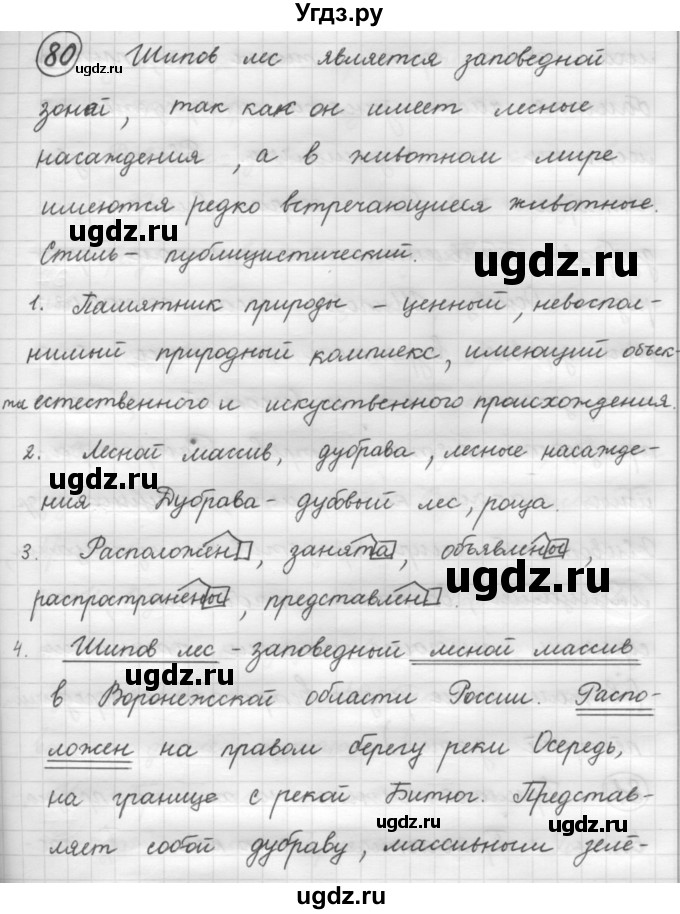 Угдз.ру
80 Шипов лес является заповедной
ugdz.ru
ugdz.ru
зоной, так как он имеет лесные
насаждения, а в животном мире
имеются редко встречающиеся животные.
ugdz.ru
ugdz.ru
Стиль – публицистический.
1. Памятник природы – ценный, невоспол-
нимый природный комплекс, имеющий объек-
ты естественного и искусственного происхождения.
2. Лесной массив, дубрава, лесные насажде-
ugdz.ru
ния Дубрава – дубовый лес, роща.
3. Расположен, занята, объявлены,
ugdz.ru
распространены, представлен.
ugdz.ru
4. Шипов лес – заповедный лесной массив
ugdz.ru
в Воронежской области России. Распо-
ложен на правом берегу реки Осередь,
на границе с рекой Битюг. Представ-
ugdz.ru
ugdz.ru
ляет собой дубраву, массивными зелё-
ugdz.ru